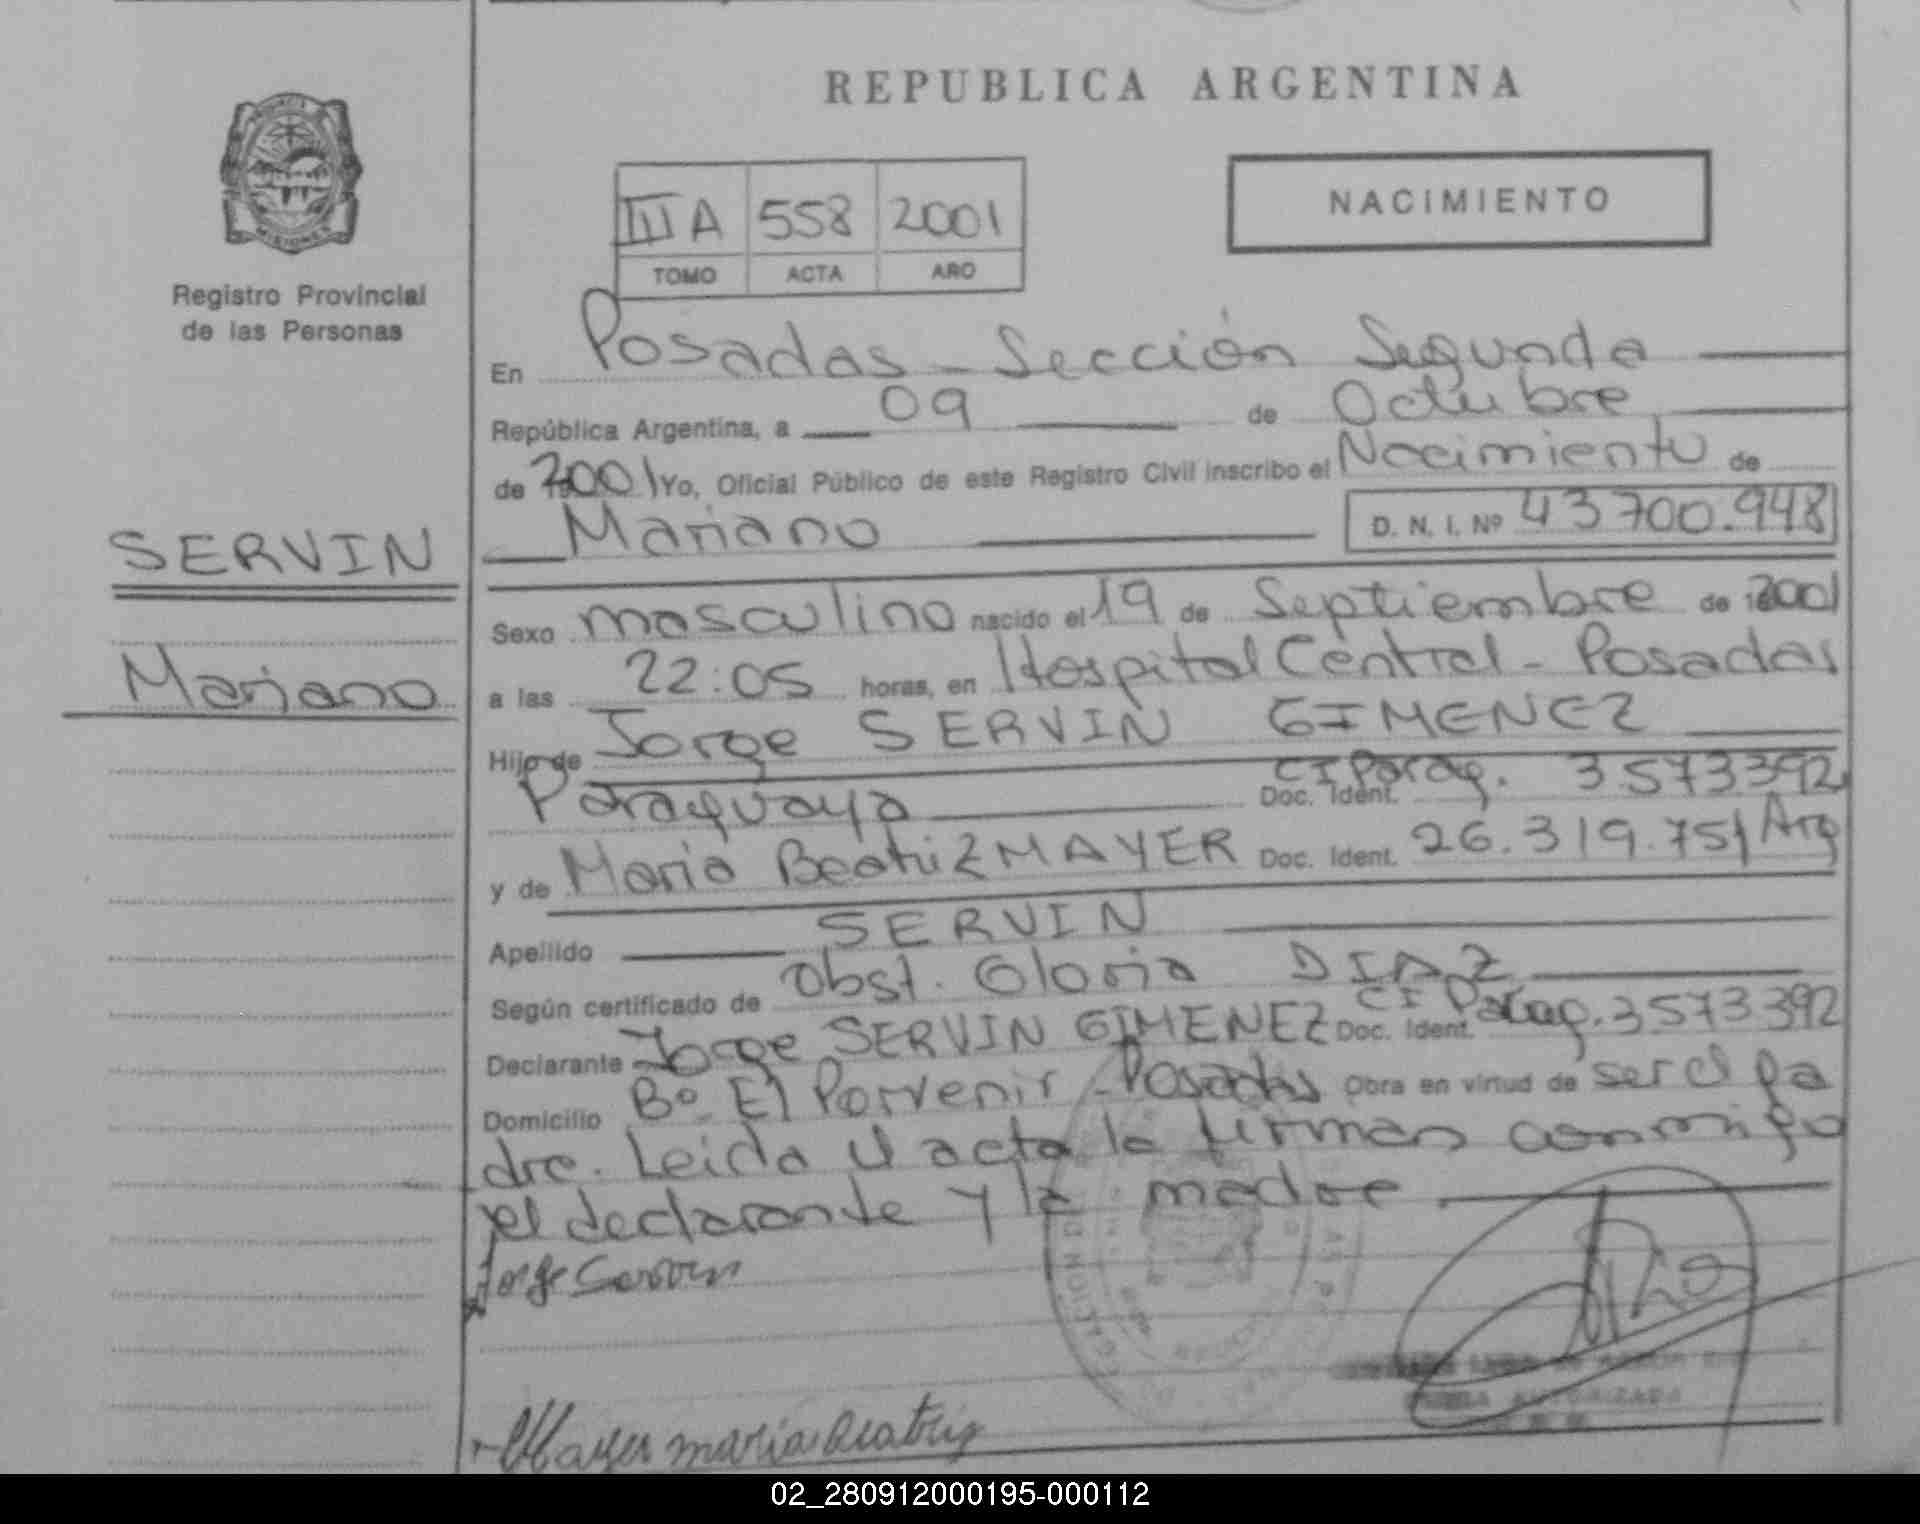 REPUBLICA ARGENTINA
MISIONES
Registro Provincial
de las Personas
III A 558 2001
TOMO ACTA AÑO
NACIMIENTO
En Posadas - Sección Segunda
República Argentina, a 09 de Octubre
de 2001 Yo, Oficial Público de este Registro Civil inscribo el Nacimiento de
Mariano D. N. I. Nº 43700.948
SERVIN
Mariano
Sexo masculino nacido el 19 de Septiembre de 2001
a las 22:05 horas, en Hospital Central - Posadas
Hijo de Jorge SERVIN GIMENEZ
Paraguaya Doc. Ident. CI Parag. 3573392
y de Maria Beatriz MAYER Doc. Ident. 26.319.751 Arg
Apellido SERVIN
Según certificado de Obst. Gloria DIAZ
Declarante Jorge SERVIN GIMENEZ Doc. Ident. CI Parag. 3573392
Domicilio Bº El Porvenir - Posadas Obra en virtud de ser el pa
dre. Leida el acta la firman conmigo
el declarante y la madre.
Jorge Servin
Mayer maria Beatriz
AUTORIZADA
02_280912000195-000112